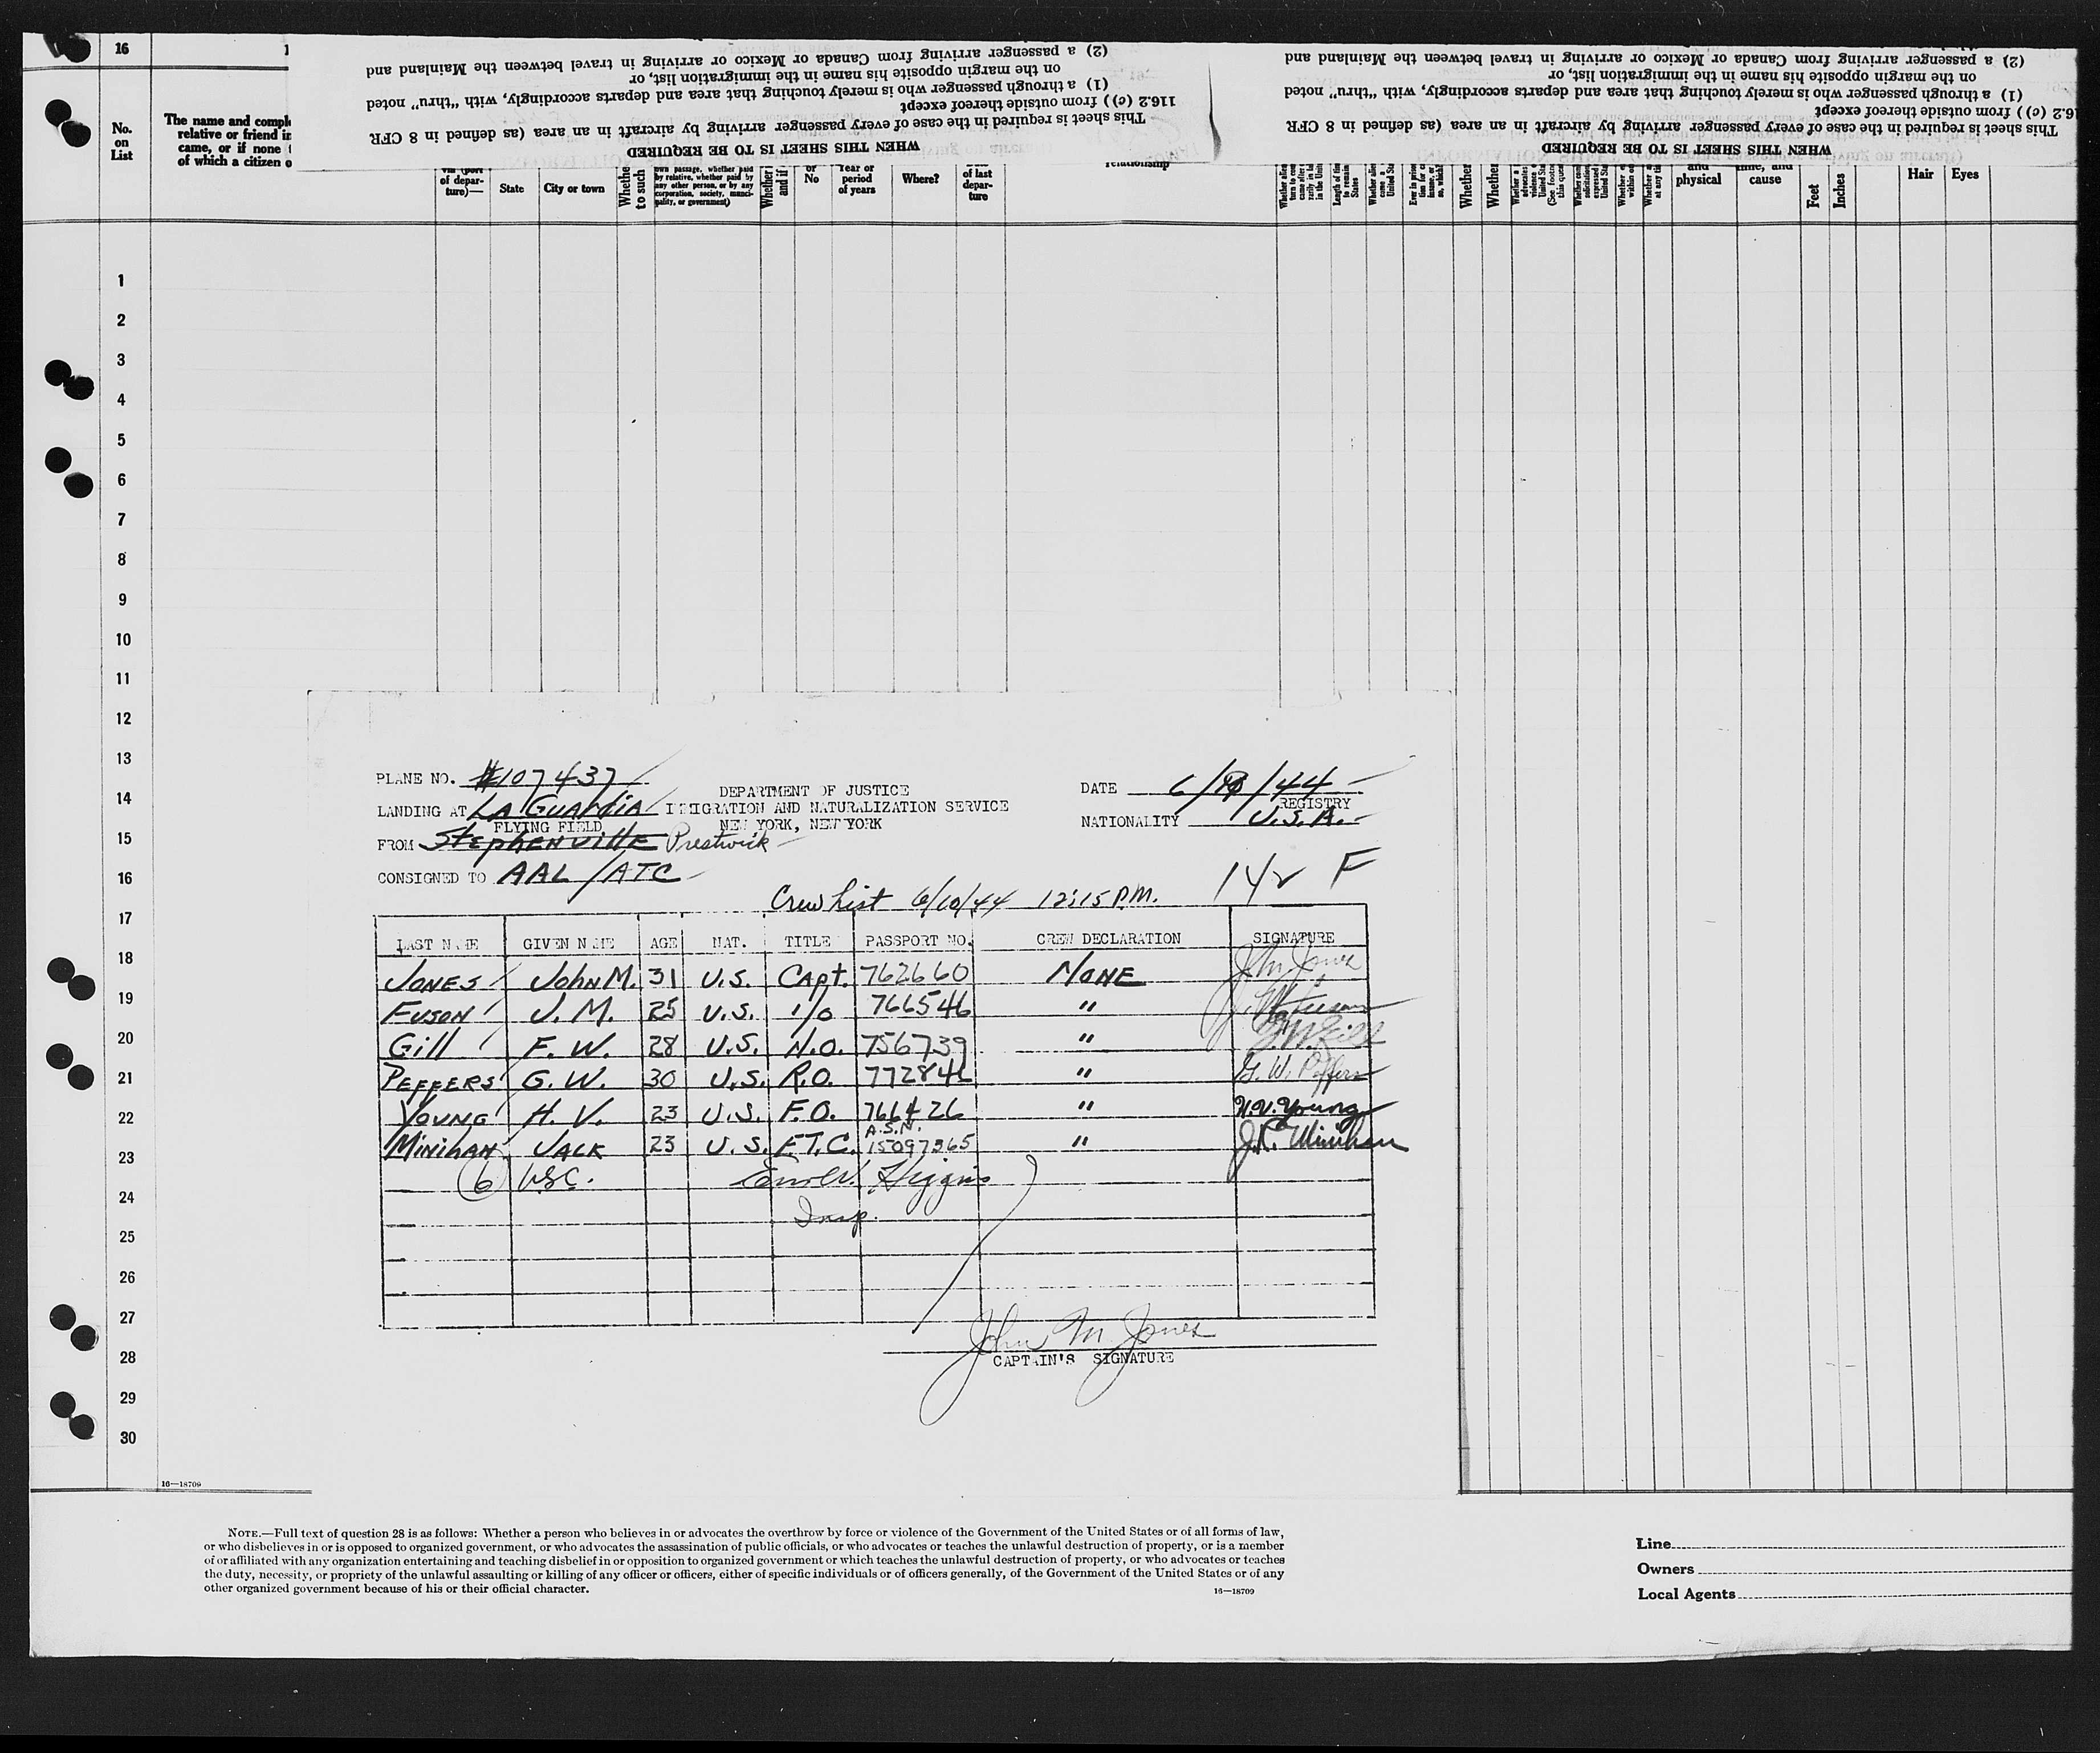 16
No.
on
List
The name and compl
relative or friend in
came, or if none
of which a citizen o
WHEN THIS SHEET IS TO BE REQUIRED
This sheet is required in the case of every passenger arriving by aircraft in an area (as defined in 8 CFR
116.2 (c) ) from outside thereof except
(1) a through passenger who is merely touching that area and departs accordingly, with "thru" noted
on the margin opposite his name in the immigration list, or
(2) a passenger arriving from Canada or Mexico or arriving in travel between the Mainland and
WHEN THIS SHEET IS TO BE REQUIRED
This sheet is required in the case of every passenger arriving by aircraft in an area (as defined in 8 CFR
6.2 (c) ) from outside thereof except
(1) a through passenger who is merely touching that area and departs accordingly, with "thru" noted
on the margin opposite his name in the immigration list, or
(2) a passenger arriving from Canada or Mexico or arriving in travel between the Mainland and
of depar-
ture)—
State
City or town
Whethe
to such
own passage, whether paid
by relative, whether paid by
any other person, or by any
corporation, society, munici-
pality, or government)
Whether
and if
or
No
Year or
period
of years
Where?
of last
depar-
ture
relationship
Length of time
to remain
States
Whether
Whether
and
physical
time, and
cause
Feet
Inches
Hair
Eyes
1
2
3
4
5
6
7
8
9
10
11
12
13
14
15
16
17
18
19
20
21
22
23
24
25
26
27
28
29
30
PLANE NO. #107437
DEPARTMENT OF JUSTICE
DATE 6/10/44
LANDING AT LA GUARDIA
IMMIGRATION AND NATURALIZATION SERVICE
REGISTRY
FLYING FIELD
NEW YORK, NEW YORK
NATIONALITY U.S.A.
FROM Stephenville Prestwick
CONSIGNED TO AAL/ATC
14 F
Crew List 6/10/44 12:15 P.M.
LAST NAME GIVEN NAME AGE NAT. TITLE PASSPORT NO. CREW DECLARATION SIGNATURE
JONES John M. 31 U.S. Capt. 762660 NONE John Jones
FUSON J. M. 25 U.S. 1/O 766546 " J. M. Fuson
Gill F. W. 28 U.S. N.O. 756739 " F. W. Gill
PEFFERS G. W. 30 U.S. R.O. 772846 " G. W. Peffers
YOUNG H. V. 23 U.S. F.O. 766426 " H. V. Young
A.S.N.
MINIHAN JACK 23 U.S. F.T.C. 15097365 " J.R. Minihan
6 USC. Higgins
Insp.
John M Jones
CAPTAIN'S SIGNATURE
16—18709
NOTE.—Full text of question 28 is as follows: Whether a person who believes in or advocates the overthrow by force or violence of the Government of the United States or of all forms of law,
or who disbelieves in or is opposed to organized government, or who advocates the assassination of public officials, or who advocates or teaches the unlawful destruction of property, or is a member
of or affiliated with any organization entertaining and teaching disbelief in or opposition to organized government or which teaches the unlawful destruction of property, or who advocates or teaches
the duty, necessity, or propriety of the unlawful assaulting or killing of any officer or officers, either of specific individuals or of officers generally, of the Government of the United States or of any
other organized government because of his or their official character.
16—18709
Line
Owners
Local Agents